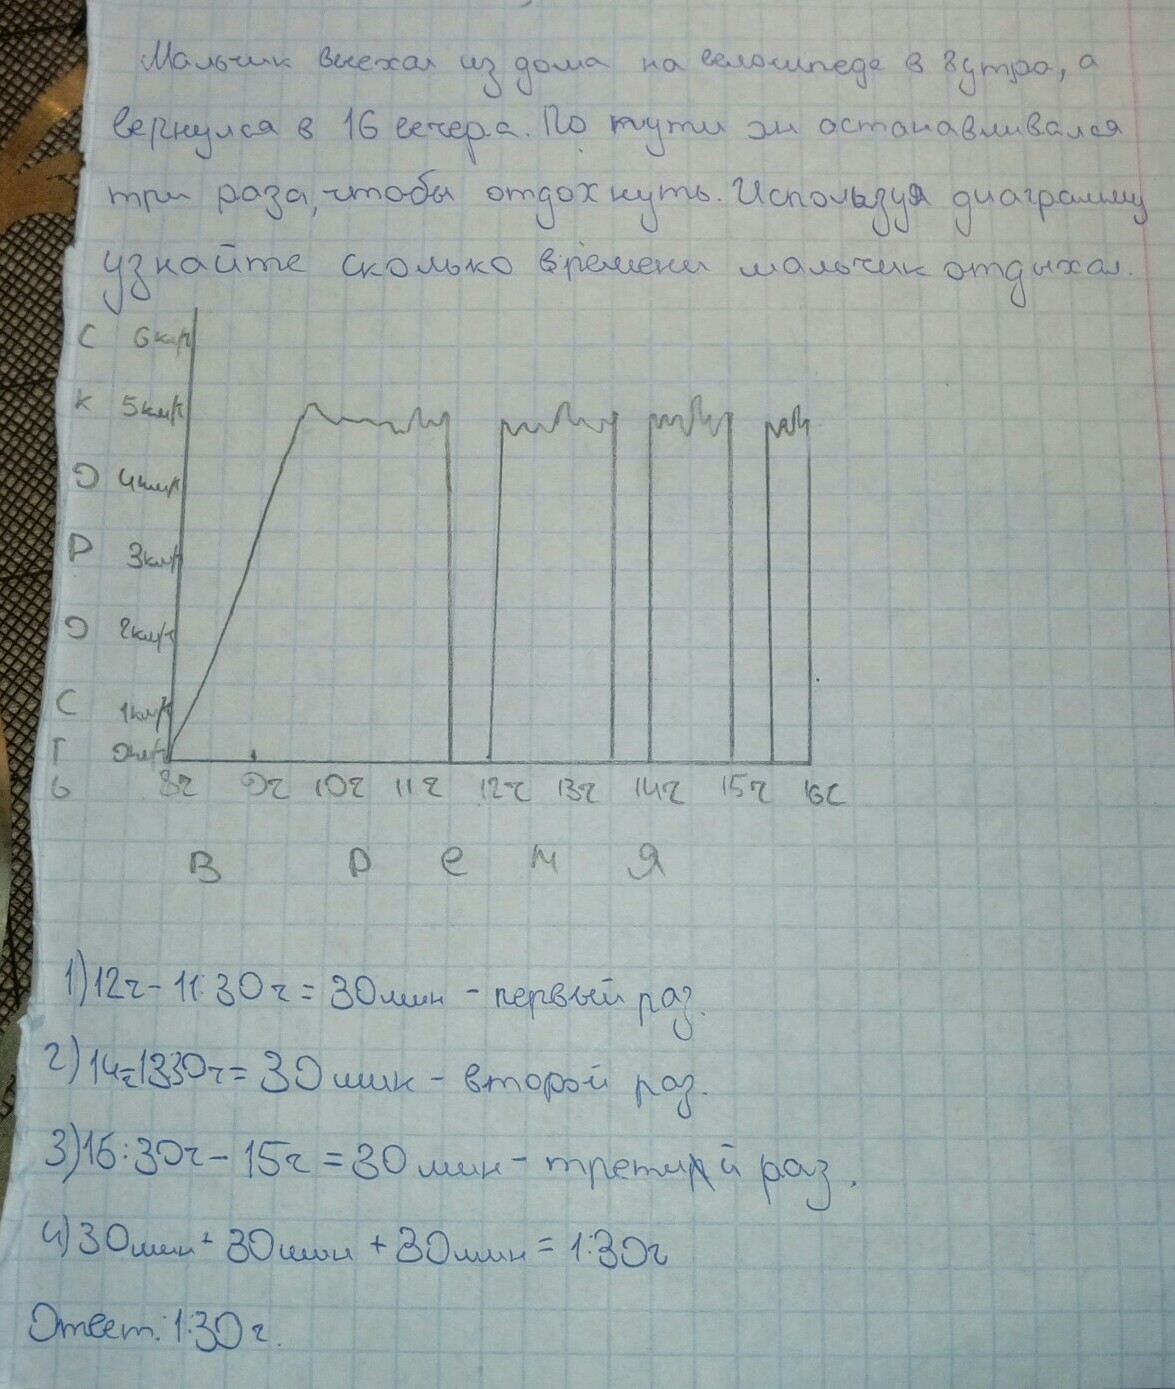 Мальчик выехал из дома на велосипеде в 8 утра, а
вернулся в 16 вечера. По пути он останавливался
три раза, чтобы отдохнуть. Используя диаграмму
узнайте сколько времени мальчик отдыхал.
С 6км/ч
К 5км/ч
О 4км/ч
Р 3км/ч
О 2км/ч
С 1км/ч
Т 0км/ч
Ь 8ч 9ч 10ч 11ч 12ч 13ч 14ч 15ч 16ч
В Р е м я
1) 12ч - 11:30ч = 30мин - первый раз.
2) 14ч-1330ч = 30 мин - второй раз.
3) 15:30ч - 15ч = 30 мин - третий раз.
4) 30мин + 30мин + 30мин = 1:30ч
Ответ: 1:30ч.